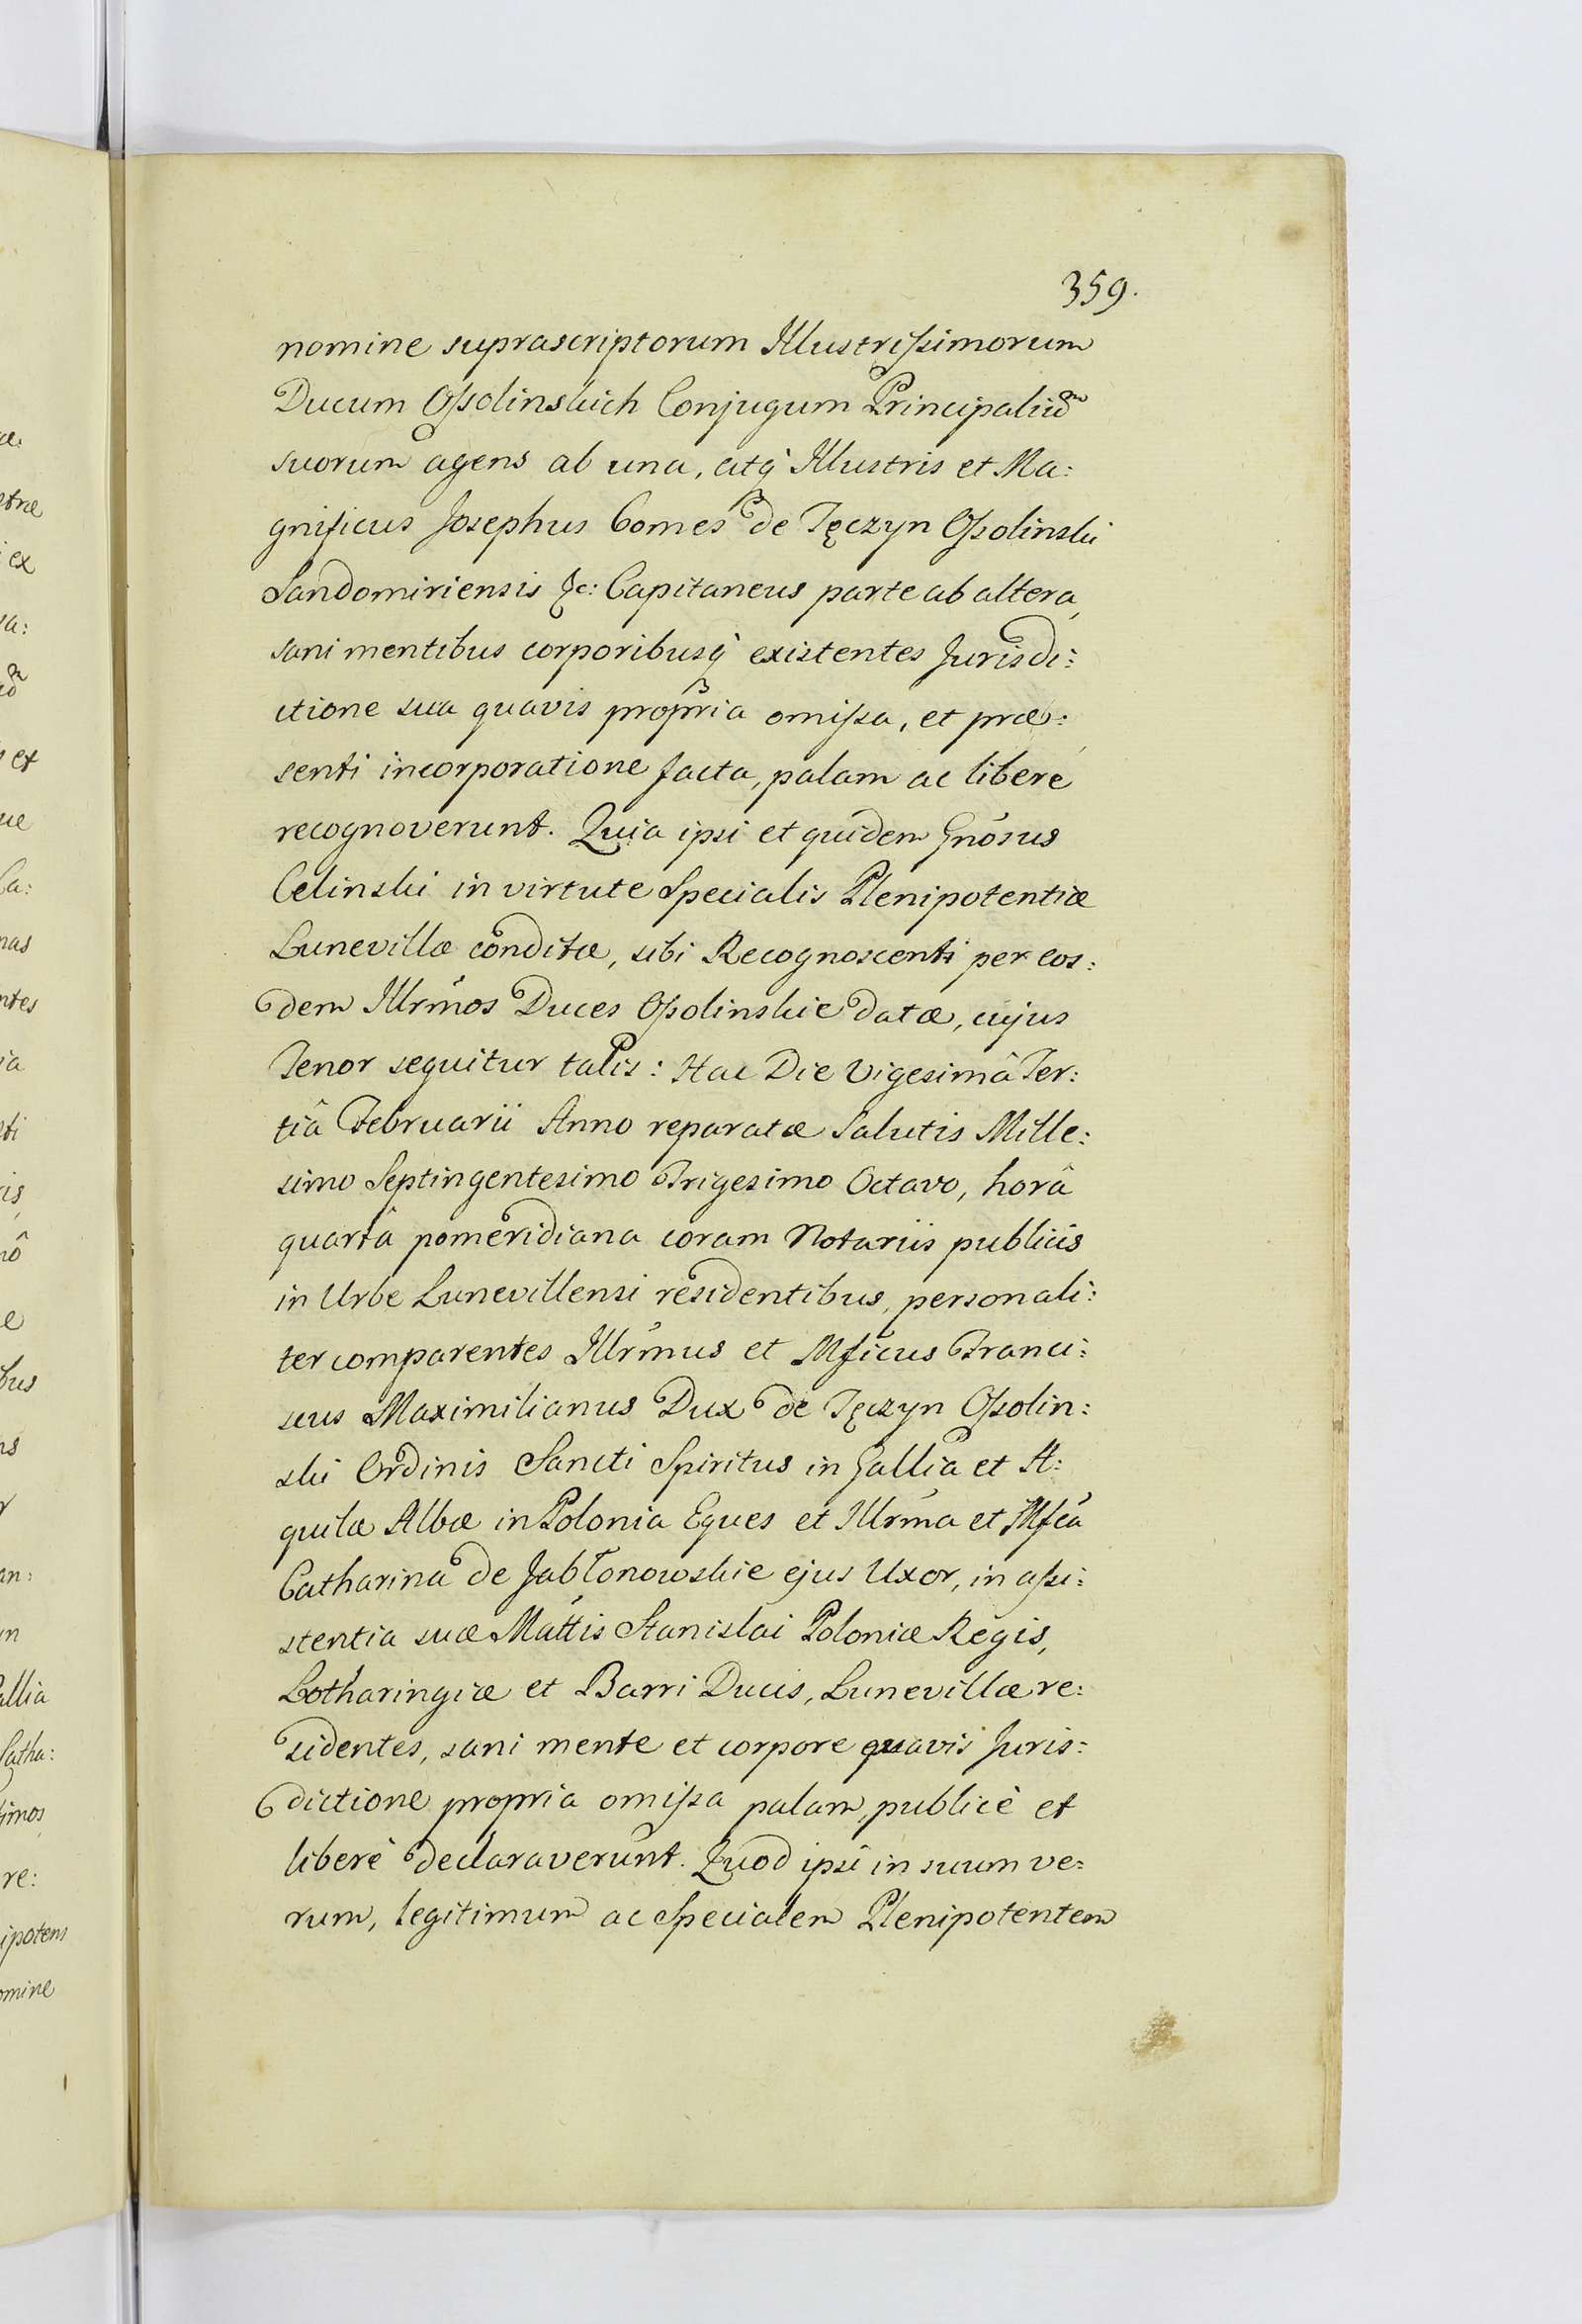 359.
nomine suprascriptorum Illustrissimorum
Ducum Ossolinskich Conjugum Principaliũ
suorum agens ab una, atq̀ Illustris et Ma:
gnificus Josephus Comes de Tęczyn Ossolinski
Sandomiriensis &c: Capitaneus parte ab altera,
sani mentibus corporibusq̀ existentes Jurisdi:
ctione sua quavis propria omissa, et præ:
senti incorporatione facta, palam ac libere
recognoverunt. Quia ipsi et quidem Gnosus
Celinski in virtute Specialis Plenipotentiæ
Lunevillæ conditæ, sibi Recognoscenti per eos:
dem Illrmos Duces Ossolinskie datæ, cujus
Tenor sequitur talis: Hac Die Vigesimâ Ter:
tiâ Februarii Anno reparatæ Salutis Mille:
simo Septingentesimo Trigesimo Octavo, horâ
quartâ pomeridiana coram Notariis publicis
in Urbe Lunevillensi residentibus, personali:
ter comparentes Illrmus et Mficus Franci:
scus Maximilianus Dux de Tęczyn Ossolin:
ski Ordinis Sancti Spiritus in Gallia et A:
quilæ Albæ in Polonia Eques et Illrma et Mfca
Catharina de Jabłonowskie ejus Uxor, in assi:
stentia suæ Mattis Stanislai Poloniæ Regis,
Lotharingiæ et Barri Ducis, Lunevillæ re:
sidentes, sani mente et corpore quavis Juris:
dictione propria omissa palam, publicè et
liberè declaraverunt. Quod ipsi in suum ve:
rum, legitimum ac Specialem Plenipotentem